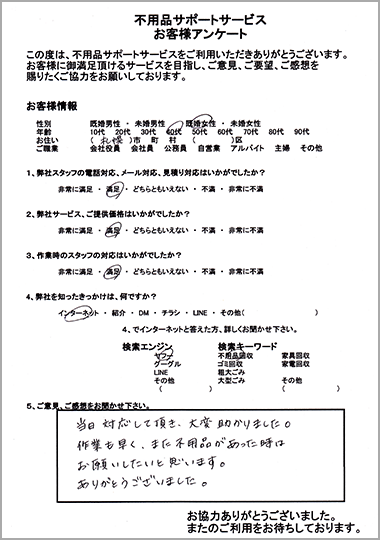 不用品サポートサービス
お客様アンケート
この度は、不用品サポートサービスをご利用いただきありがとうございます。
お客様に御満足頂けるサービスを目指し、ご意見、ご要望、ご感想を
賜りたくご協力をお願いしております。
お客様情報
性別 既婚男性 ・ 未婚男性 既婚女性 ・ 未婚女性
年齢 10代 20代 30代 40代 50代 60代 70代 80代 90代
お住い ( 札幌 )市 町 村 ( )区
ご職業 会社役員 会社員 公務員 自営業 アルバイト 主婦 その他
1、弊社スタッフの電話対応、メール対応、見積り対応はいかがでしたか?
非常に満足 ・ 満足 ・ どちらともいえない ・ 不満 ・ 非常に不満
2、弊社サービス、ご提供価格はいかがでしたか?
非常に満足 ・ 満足 ・ どちらともいえない ・ 不満 ・ 非常に不満
3、作業時のスタッフの対応はいかがでしたか?
非常に満足 ・ 満足 ・ どちらともいえない ・ 不満 ・ 非常に不満
4、弊社を知ったきっかけは、何ですか?
インターネット ・ 紹介 ・ DM ・ チラシ ・ LINE ・ その他( )
4、でインターネットと答えた方、詳しくお聞かせ下さい。
検索エンジン 検索キーワード
ヤフー 不用品回収 家具回収
グーグル ゴミ回収 家電回収
LINE 粗大ごみ
その他 大型ごみ その他
( ) ( )
5、ご意見、ご感想をお聞かせ下さい。
当日対応して頂き、大変助かりました。
作業も早く、また不用品があった時は
お願いしたいと思います。
ありがとうございました。
お協力ありがとうございました。
またのご利用をお待ちしております。